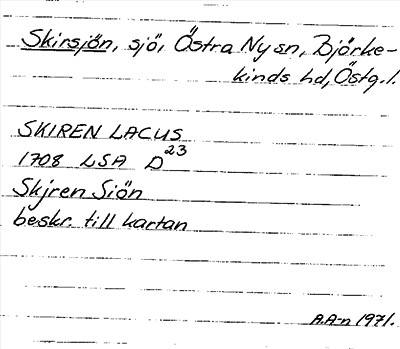 Skirsjön, sjö, Östra Ny sn, Björke-
kinds hd, Östg.l.
SKIREN LACUS
1708 LSA D 23
Skjren Siön
beskr. till kartan
A.A-n 1971.